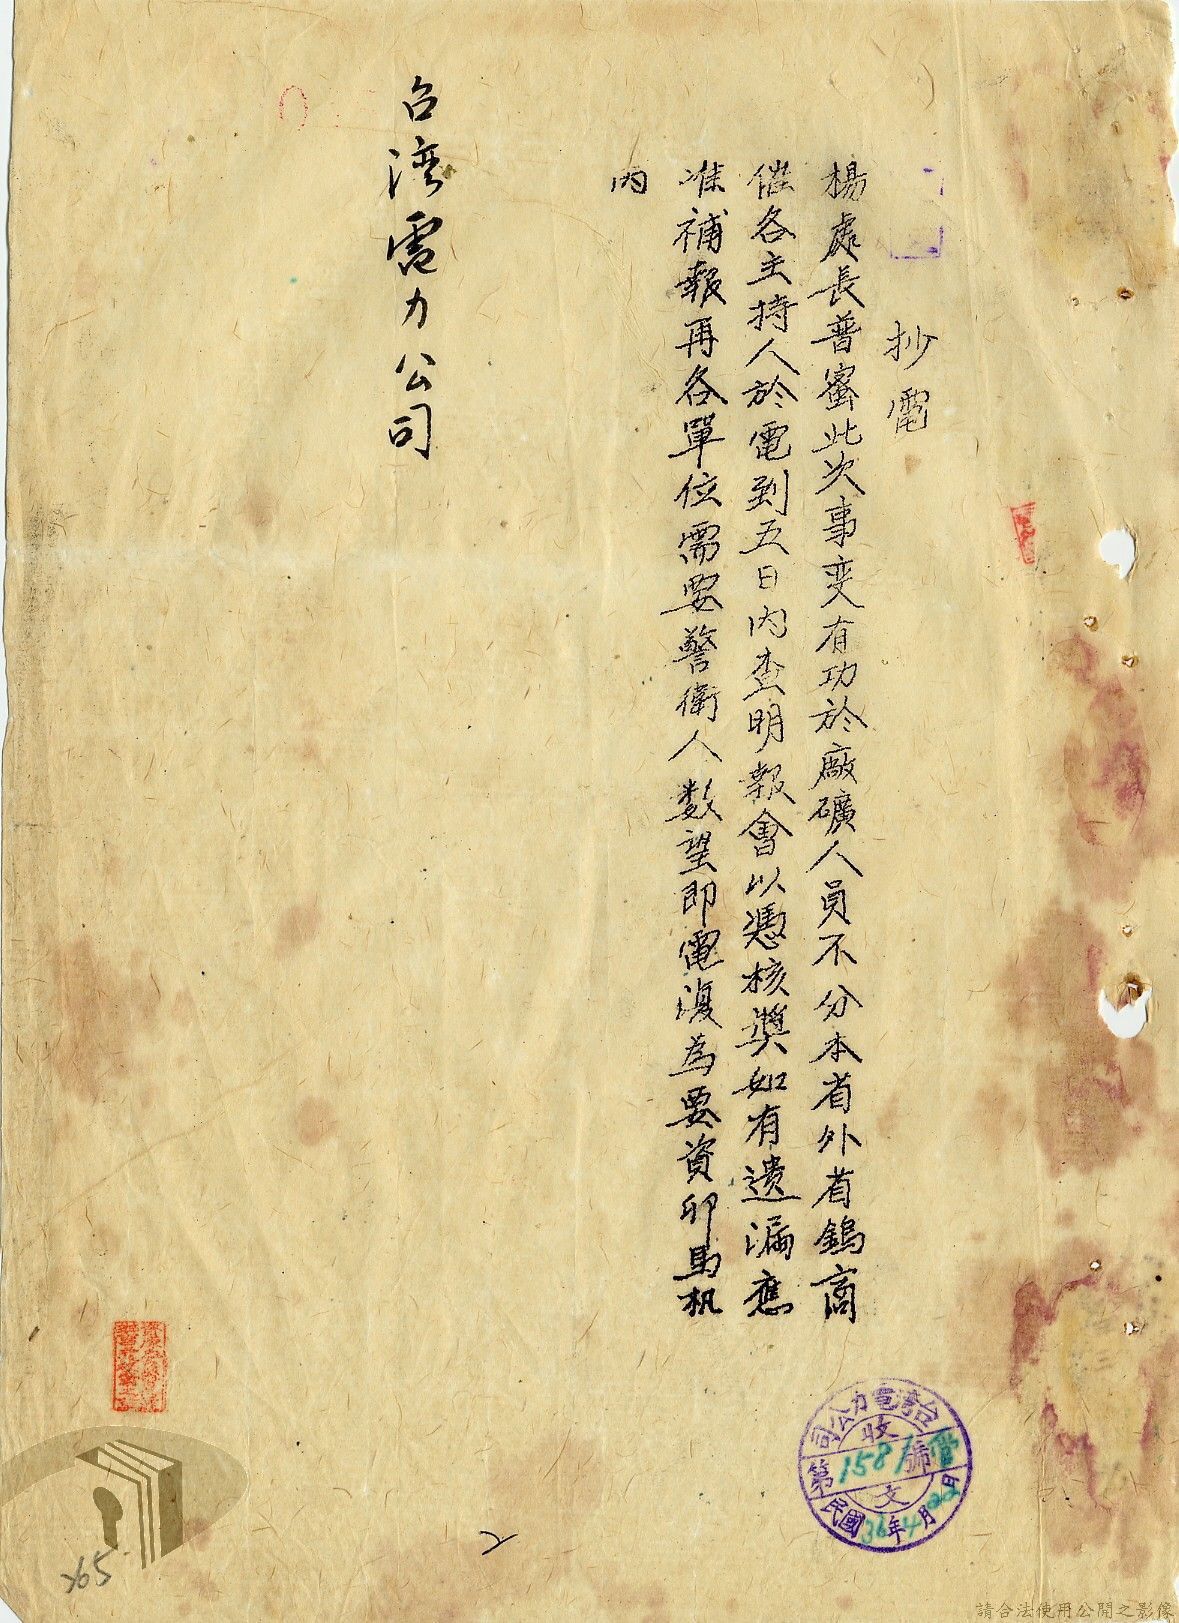 抄電
楊處長普蜜此次事变有功於廠礦人員不分本省外省鎢商
催各主持人於電到五日內查明報會以憑核獎如有遺漏應
准補報再各單位需要警衛人数望即電復為要資卯馬机
內
台湾電力公司
台灣電力公司
收
第1581號
文
民國36年4月22日
2
265
請合法使用公開之影像